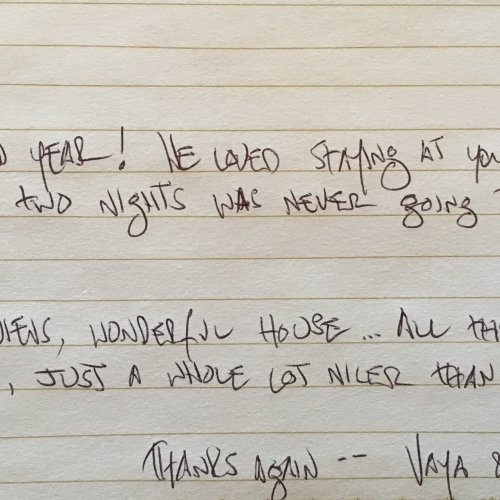 YEAR! WE LOVED STAYING AT YOU
TWO NIGHTS WAS NEVER GOING
WONDERFUL HOUSE... ALL THI
, JUST A WHOLE LOT NICER THAN
THANKS AGAIN -- VAYA &